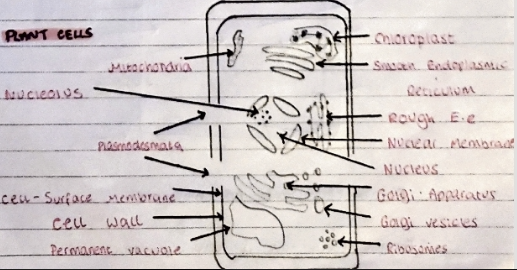 PLANT CELLS
Chloroplast
Mitochondria
Smooth Endoplasmic
Reticulum
Nucleolus
Rough E.e
Nuclear Membrane
Plasmodesmata
Nucleus
Cell-Surface Membrane
Golgi Apparatus
Cell wall
Golgi vesicles
Permanent vacuole
Ribosomes